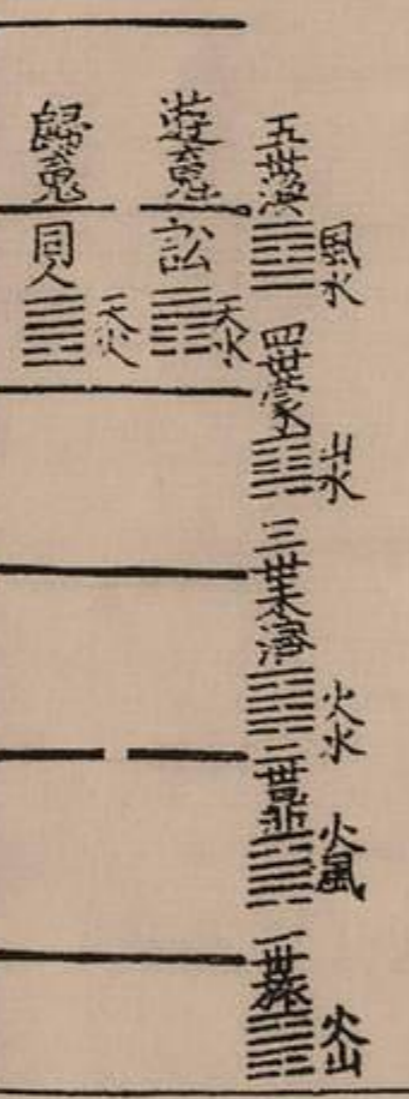 五世渙
風水
四世蒙
山水
三世未濟
火水
二世鼎
火風
一世旅
火山
遊䰟
訟
天水
歸䰟
同人
天火